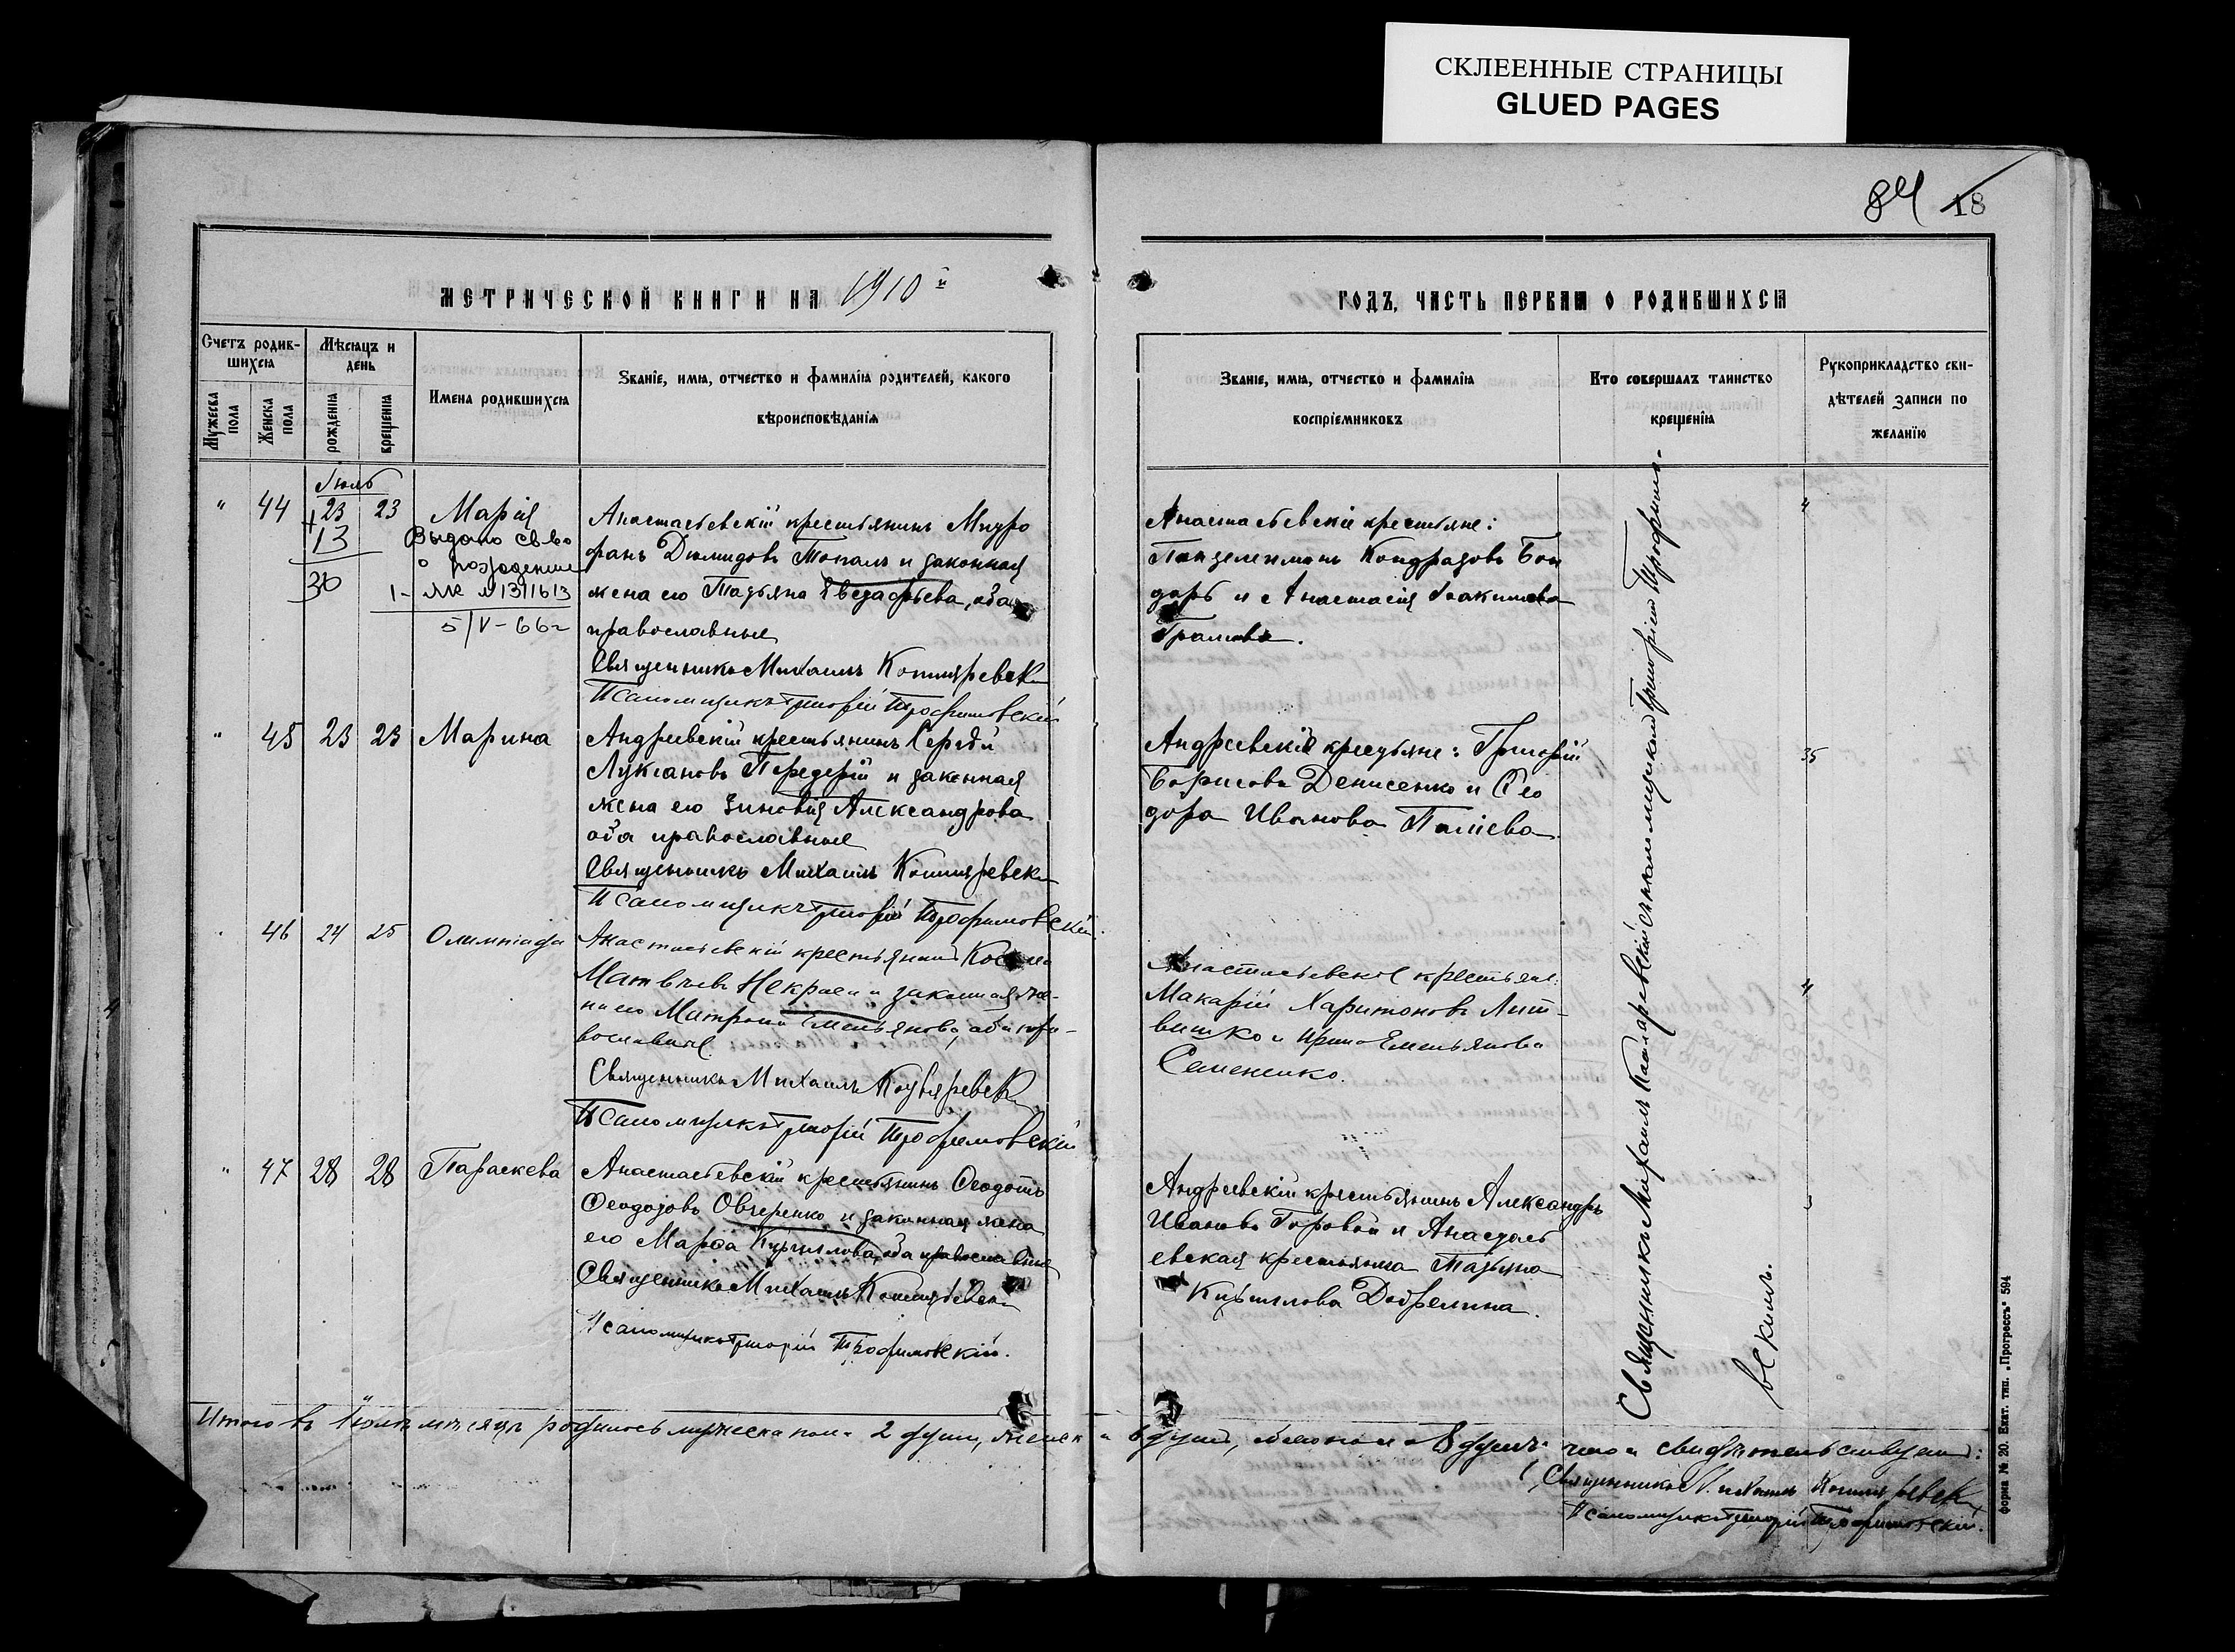 СКЛЕЕННЫЕ СТРАНИЦЫ
GLUED PAGES
84 18
МЕТРИЧЕСКОЙ КНИГИ НА 1910 й
Счетъ родив-
шихся
Мѣсяцъ и
день
Мужеска
пола
Женска
пола
рожденія
крещенія
Имена родившихся
Званіе, имя, отчество и фамилія родителей, какого
вѣроисповѣданія
Іюль
" 44 23 23 Марія
13
Выдано св-во
о рождении
30 1- ЯК № 1311613
5/V-66г
Анастасьевскій крестьянинъ Митро
фанъ Діомидовъ Топалъ и законная
жена его Татьяна Евстафьева, оба
православные
Священникъ Михаилъ Котляревскій
Псаломщикъ Григорій Трофимовскій
" 45 23 23 Марина
Андреевскій крестьянинъ Сергѣй
Лукіановъ Передерій и законная
жена его Зиновія Александрова
оба православные
Священникъ Михаилъ Котляревскій
Псаломщикъ Григорій Трофимовскій.
46 24 25 Олимпіада
Анастасьевскій крестьянинъ Косьма
Матвѣевъ Некраса и законная же-
на его Матрона Емельянова, оба пра-
вославные.
Священникъ Михаилъ Котляревскій
Псаломщикъ Григорій Трофимовскій
" 47 28 28 Параскева
Анастасьевскій крестьянинъ Ѳеодотъ
Ѳеодотовъ Овчеренко и законная жена
его Марѳа Кириллова, оба православные
Священникъ Михаилъ Котляревскій
Псаломщикъ Григорій Трофимовскій.
Итого въ Іюлѣ мѣсяцѣ родилось мужеска пола 2 души, женска 6 душъ, обоего пола 8 душъ что и свидѣтельствуемъ:
ГОДЪ, ЧАСТЬ ПЕРВАЯ О РОДИВШИХСЯ
Званіе, имя, отчество и фамилія
воспріемниковъ
Кто совершалъ таинство
крещенія
Рукоприкладство сви-
дѣтелей записи по
желанію
Анастасьевскіе крестьяне:
Пантелеимонъ Кондратовъ Бон
дарь и Анастасія Іоакимова
Андреевскіе крестьяне: Григорій
Борисовъ Денисенко и Ѳео
дора Иванова Паліева
Анастасьевскіе крестьяне:
Макарій Харитоновъ Лит-
вишко и Ирина Емельянова
Семененко.
Андреевскій крестьянинъ Александръ
Ивановъ Горовой и Анастась
евская крестьянка Татьяна
Кириллова Добрелина.
Священникъ Михаилъ Котляревскій съ псаломщикомъ Григоріемъ Трофимо-
вскимъ.
Священникъ Михаилъ Котляревскій
Псаломщикъ Григорій Трофимовскій.
форма № 20. Екат. тип. „Прогрессъ" 594